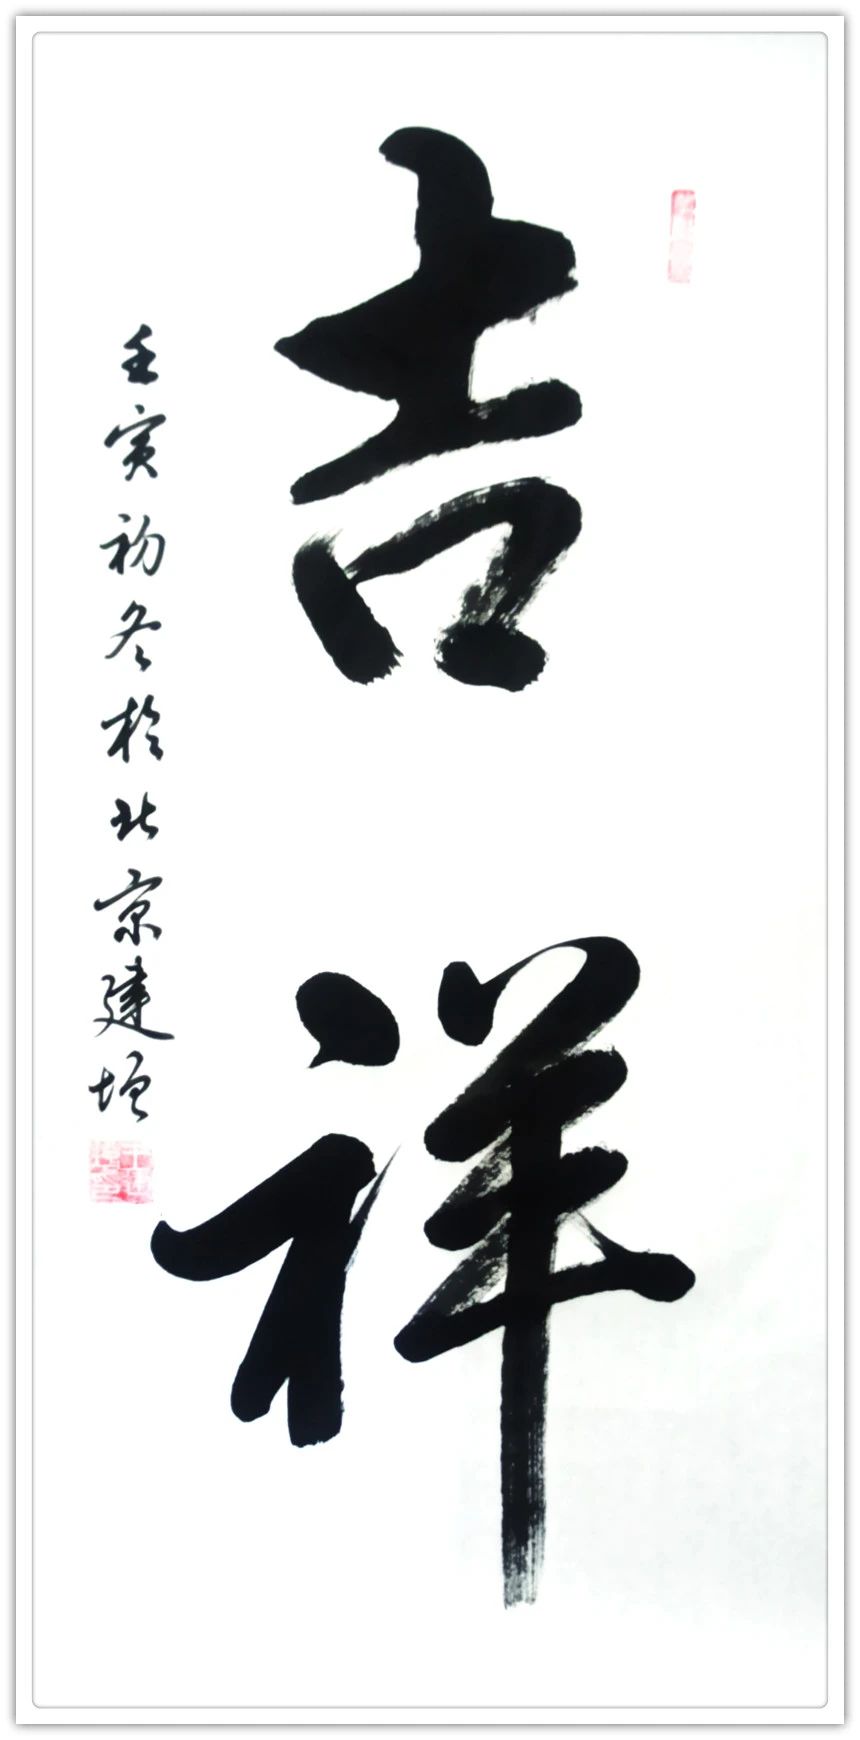 吉祥
壬寅初冬於北京建增